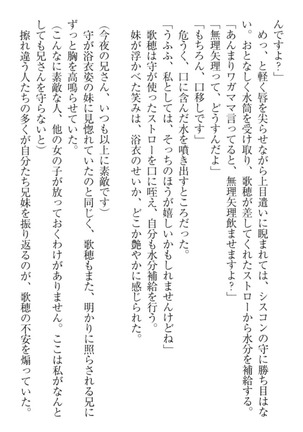 んですよ？」
　めっ、と軽く唇を尖らせながら上目遣いに睨まれては、シスコンの守に勝ち目はな
い。おとなしく水筒を受け取り、歌穂が差してくれたストローから水分を補給する。
「あんまりワガママ言ってると、無理矢理飲ませますよ？」
「無理矢理って、どうすんだよ」
「もちろん、口移しです」
　危うく、口に含んだ水を噴き出すところだった。
「うふふ、私としては、そっちのほうが嬉しいかもしれませんけどね」
　歌穂は守が使ったストローを口に咥え、自分も水分補給を行う。
　妹が浮かべた笑みは、浴衣のせいか、どこか艶やかに感じられた。
（今夜の兄さん、いつも以上に素敵です）
　守が浴衣姿の妹に見惚れていたのと同じく、歌穂もまた、明かりに照らされる兄に
ずっと胸を高鳴らせていた。
（こんなに素敵な人、他の女の子が放っておくわけがありません。ここは私がなんと
しても兄さんを守らないと）
　擦れ違う人たちの多くが自分たち兄妹を振り返るのが、歌穂の不安を煽っていた。